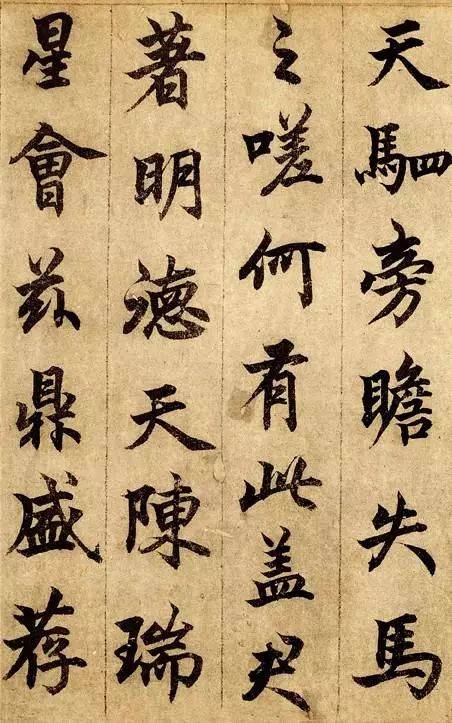 天駟旁瞻失馬
之嗟何有此盖君
著明德天陳瑞
星會茲鼎盛荐